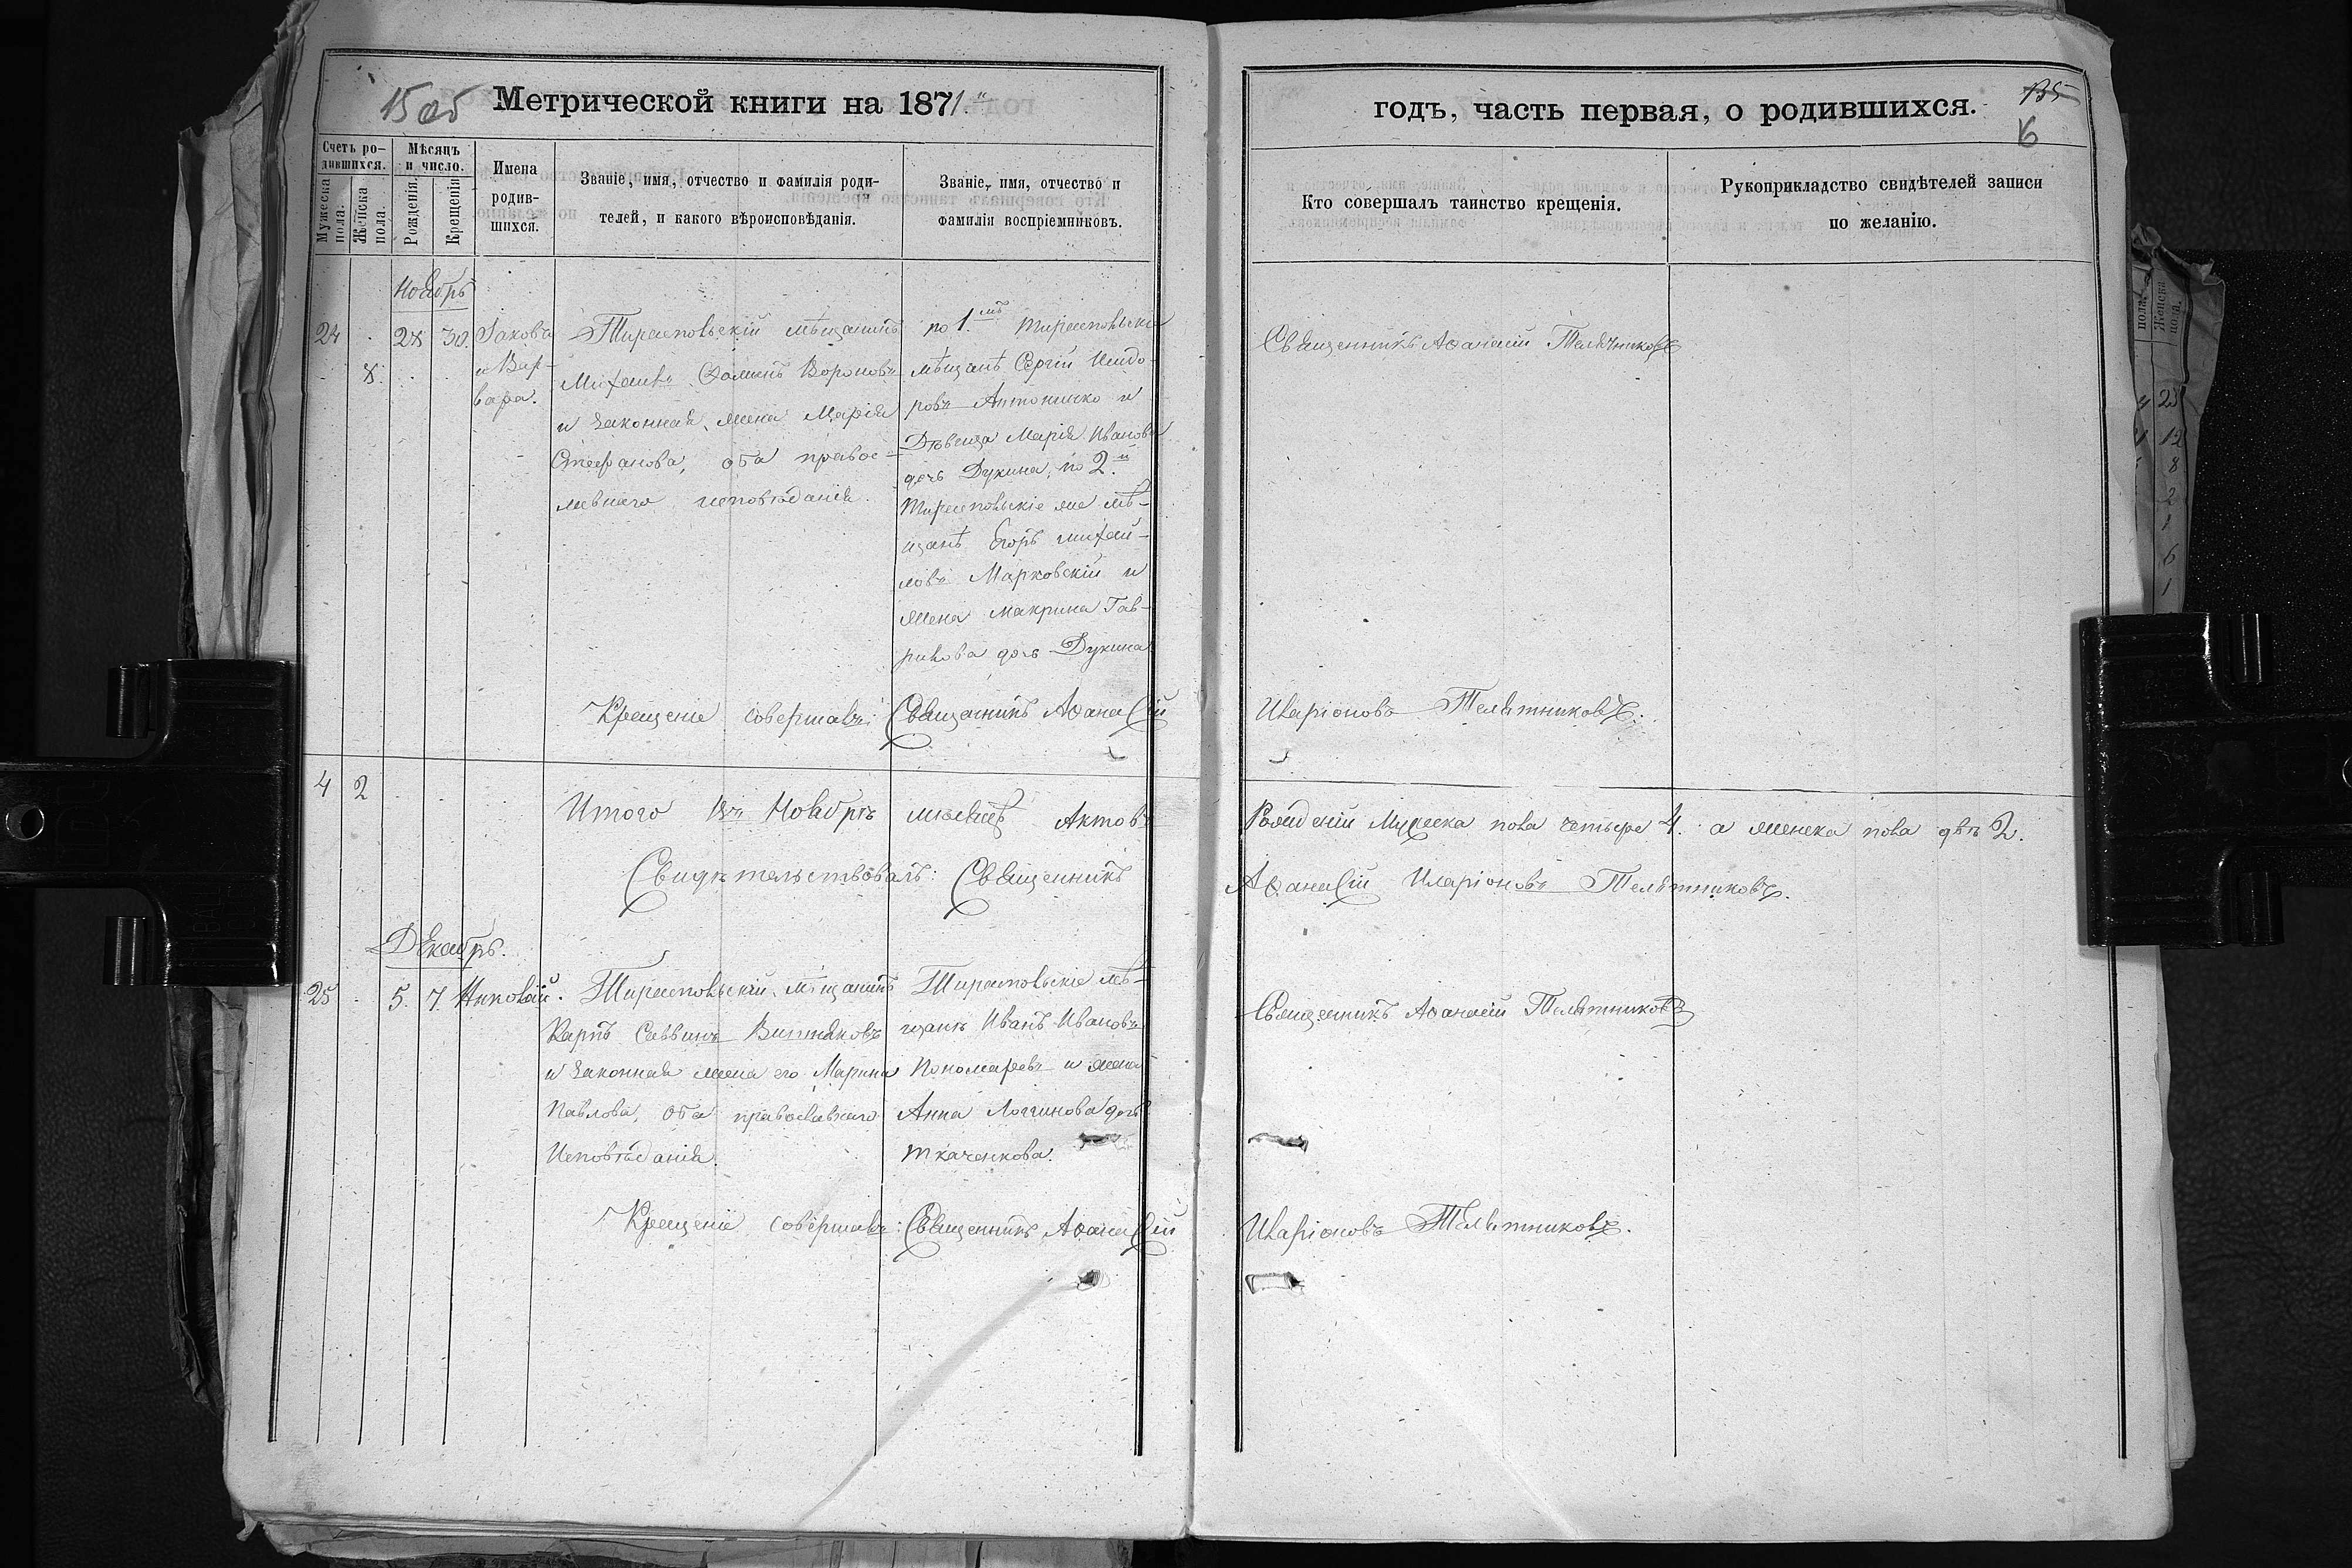 15об Метрической книги на 1871.й
годъ, часть первая, о родившихся.
135
16
Счетъ ро-
дившихся.
Мужеска
пола.
Женска
пола.
Мѣсяцъ
и число.
Рожденія.
Крещенія.
Имена
родив-
шихся.
Званіе, имя, отчество и фамилія роди-
телей, и какого вѣроисповѣданія.
Званіе, имя, отчество и
фамилія воспріемниковъ.
Кто совершалъ таинство крещенія.
Рукоприкладство свидѣтелей записи
по желанію.
Ноябрь
24 28 30. Іаковъ
8. и Вар-
вара.
Тираспольскій мѣщанинъ
Михаилъ Вороновъ
и законная жена Марія
Стефанова, оба правос-
лавнаго исповѣданія.
по 1.мъ Тираспольскіе
мѣщанѣ Сергій Исидо-
ровъ Антонично и
Дѣвица Марія Иванова
дочь Дукина, по 2.й
Тираспольскіе же мѣ-
щанѣ Егоръ Михай-
ловъ Марковскій и
жена Макрина Гав-
рилова дочь Дукина
Священникъ Аѳанасій Телятниковъ
Крещеніе совершалъ: Священникъ Аѳанасій
Иларіоновъ Телятниковъ.
4 2
Итого въ Ноябрѣ мѣсяцѣ Актовъ
Рожденій Мужеска пола четыре 4. а женска пола двѣ 2.
Свидѣтельствовалъ: Священникъ
Аѳанасій Иларіоновъ Телятниковъ.
Декабрь.
25 5. 7. Николай.
Тираспольскій мѣщанинъ
Карпъ Саввинъ
и законная жена его Марина
Павлова, оба православнаго
Исповѣданія.
Тираспольскіе мѣ-
щанѣ Иванъ Ивановъ
Пономаревъ и жена
Анна Логгинова дочь
Ткаченкова.
Священникъ Аѳанасій Телятниковъ
Крещеніе совершалъ: Священникъ Аѳанасій
Иларіоновъ Телятниковъ.
пола.
Женска
пола.
25
12
8
2
6
1